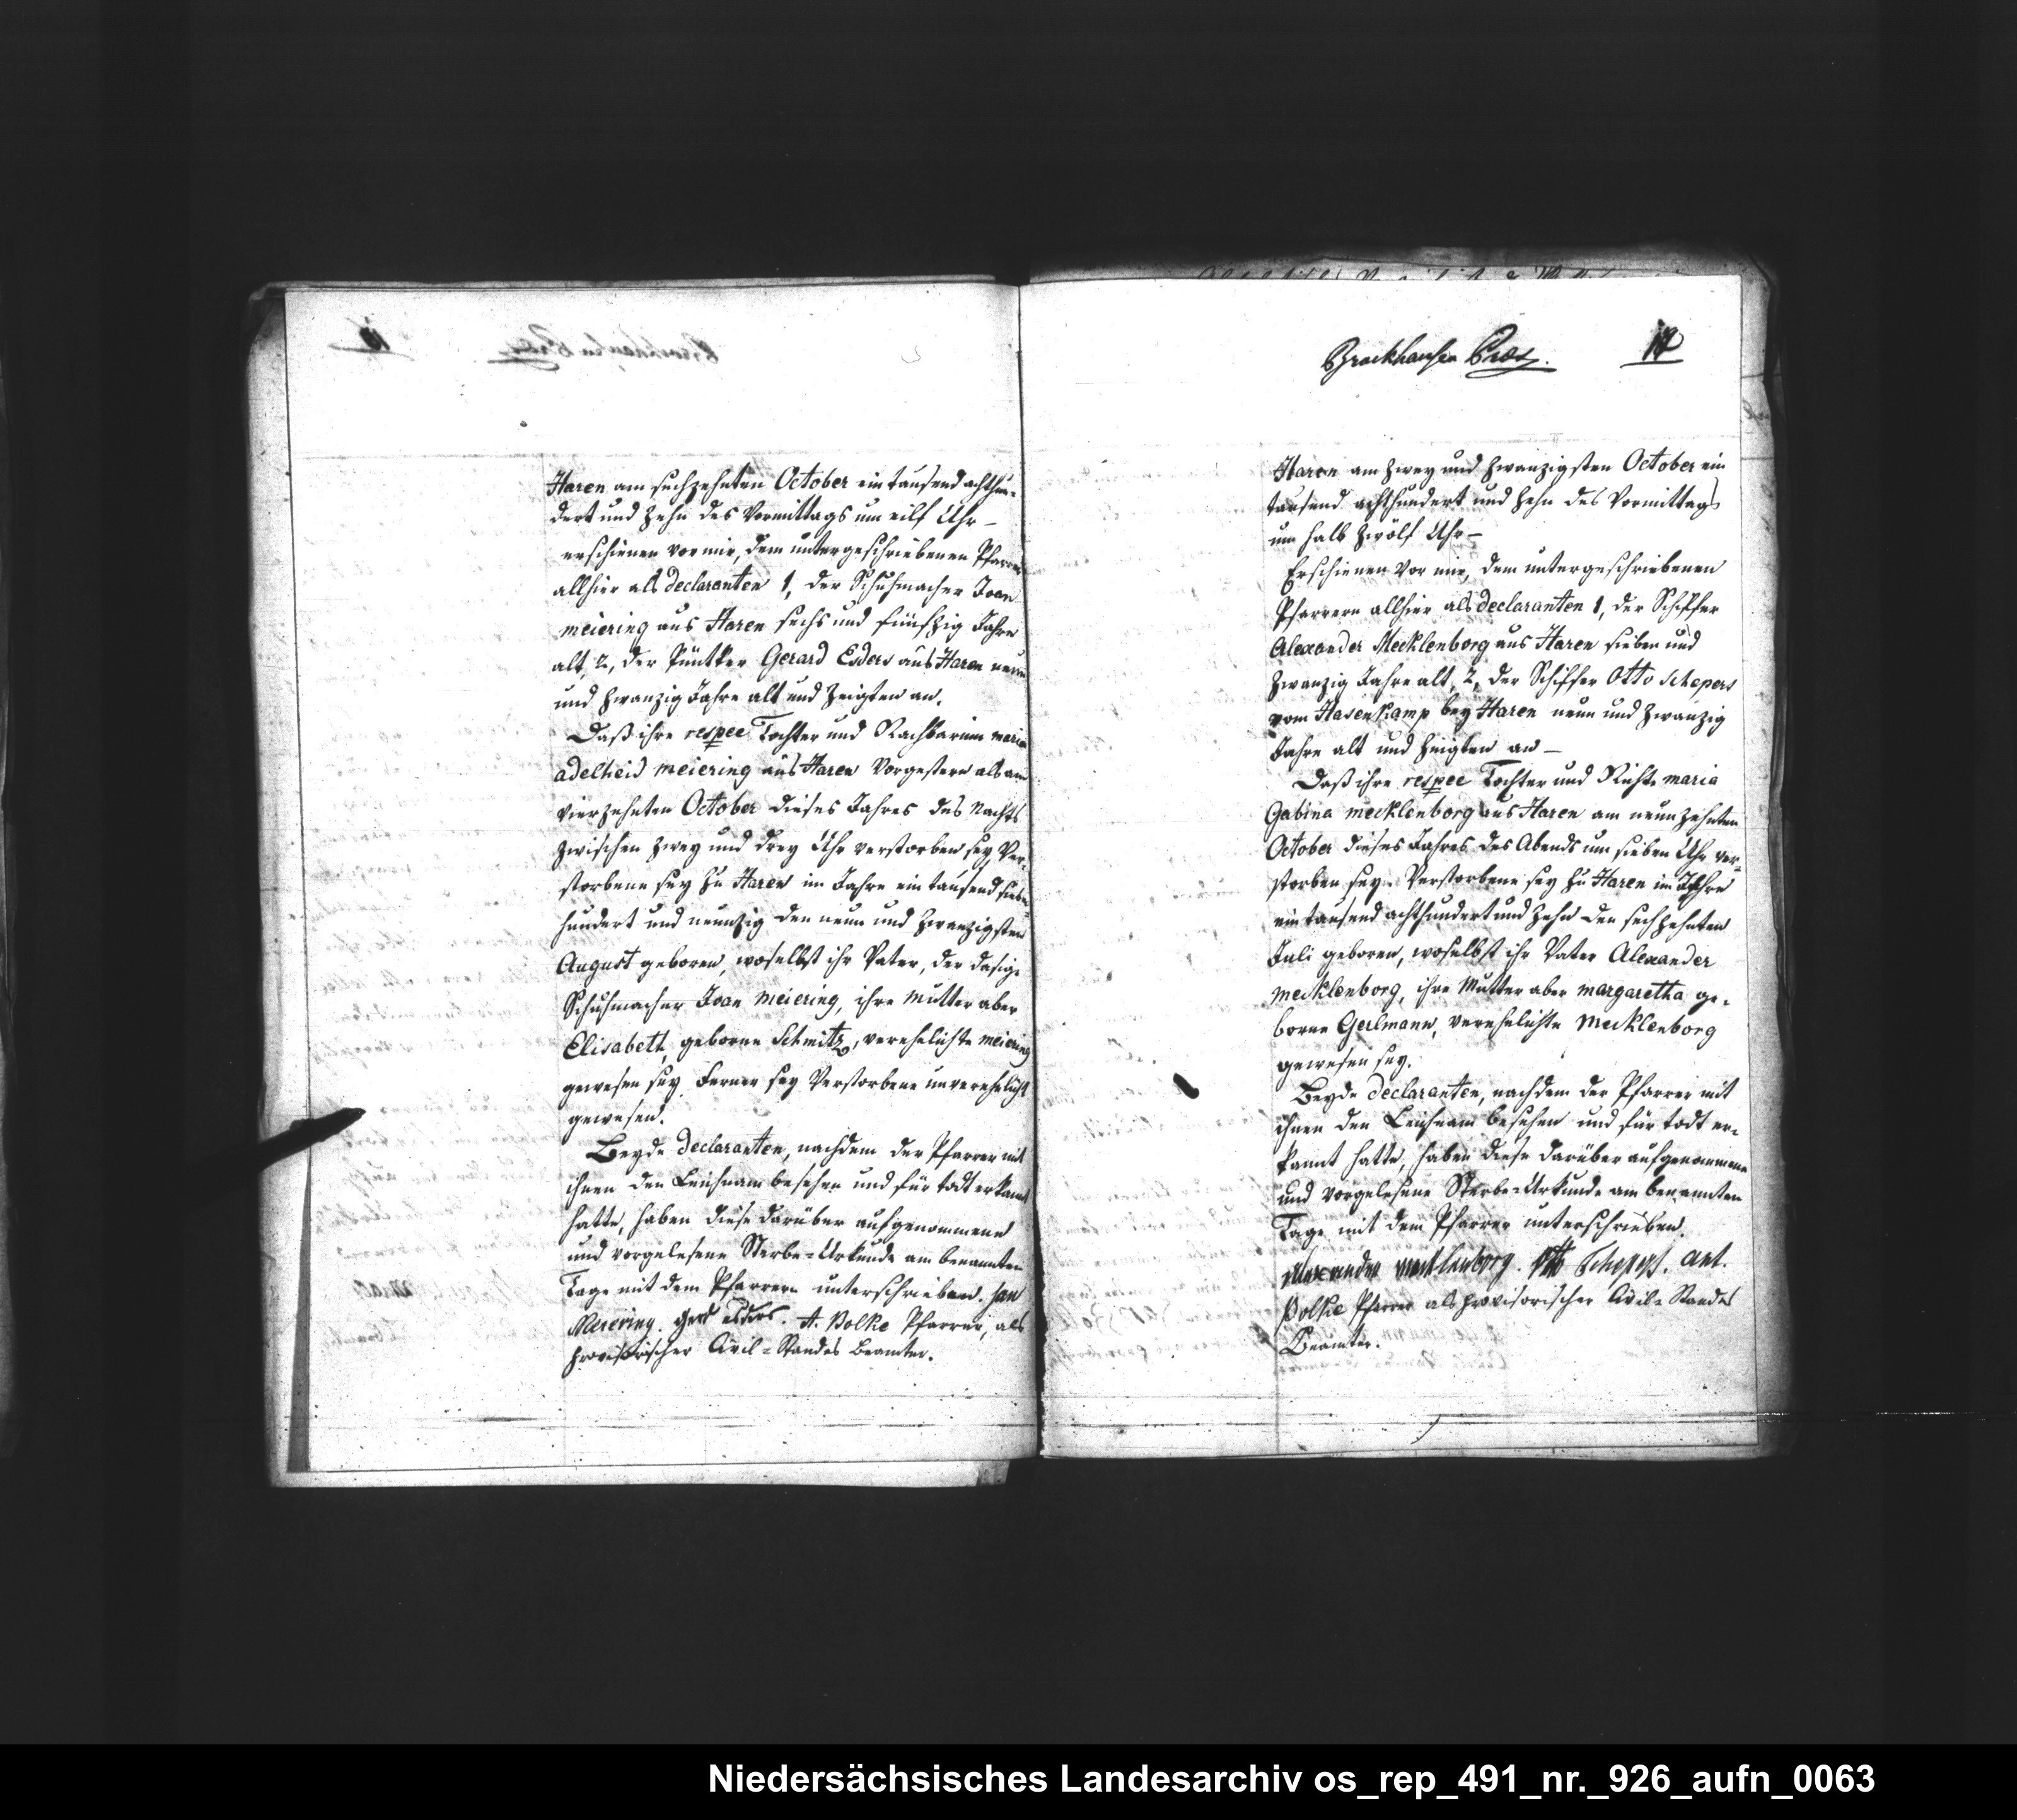 Haren am sechzehnten October ein tausend achthun-
dert und zehn des Vormittags um eilf Uhr –
erschienen vor mir, dem untergeschriebenen Pfarrer
allhier als declaranten 1, der Schuhmacher Joan
meiering aus Haren sechs und fünfzig Jahre
alt, 2, der Püntker Gerard Esders aus Haren neun
und zwanzig Jahre alt und zeigten an.
Daß ihre respec Tochter und Nachbarinn maria
adelheid meiering aus Haren vorgestern als am
vierzehnten October dieses Jahres des Nachts
zwischen zwey und drey Uhr verstorben sey, Ver-
storbene sey zu Haren im Jahre ein tausend sieben
hundert und neunzig den neun und zwanzigsten
August geboren, woselbst ihr Vater, der dasige
Schuhmacher Joan meiering, ihre Mutter aber
Elisabeth, geborne Schmitz, verehelichte meiering
gewesen sey. Ferner sey Verstorbene unverehelicht
gewesen.
Beyde declaranten, nachdem der Pfarrer mit
ihnen den Leichnam besehen und für todt erkannt
hatte, haben diese darüber aufgenommene
und vorgelesene Sterbe-Urkunde am benannten
Tage mit dem Pfarrern unterschrieben. Jan
Meiering. Gerd esders. A. Bolke Pfarrer, als
provisorischer Civil-Standes Beamter.
Brockhausen Præs. 12
Haren am zwey und zwanzigsten October ein
tausend achthundert und zehn des Vormittags
um halb zwölf Uhr –
Erschienen vor mir, dem untergeschriebenen
Pfarrern allhier als declaranten 1, der Schiffer
Alexander Mecklenborg aus Haren sieben und
zwanzig Jahre alt, 2, der Schiffer Otto Schepers
vom Hasenkamp bey Haren neun und zwanzig
Jahre alt und zeigten an –
Daß ihre respec Tochter und Nichte maria
Gabina mecklenborg aus Haren am neunzehnten
October dieses Jahres des Abends um sieben Uhr ver-
storben sey. Verstorbene sey zu Haren im Jahre
ein tausend achthundert und zehn den sechzehnten
Juli geboren, woselbst ihr Vater Alexander
mecklenborg, ihre Mutter aber margaretha ge-
borne Geelmann, verehelichte mecklenborg
gewesen sey.
Beyde declaranten, nachdem der Pfarrer mit
ihnen den Leichnam besehen und für todt er-
kannt hatte, haben diese darüber aufgenommene
und vorgelesene Sterbe-Urkunde am benannten
Tage mit dem Pfarrer unterschrieben.
Alexander mecklenborg. Otto Schepers. Ant.
Bolke Pfarrer als provisorischer Civil-Standes
Beamter.
Niedersächsisches Landesarchiv os_rep_491_nr._926_aufn_0063